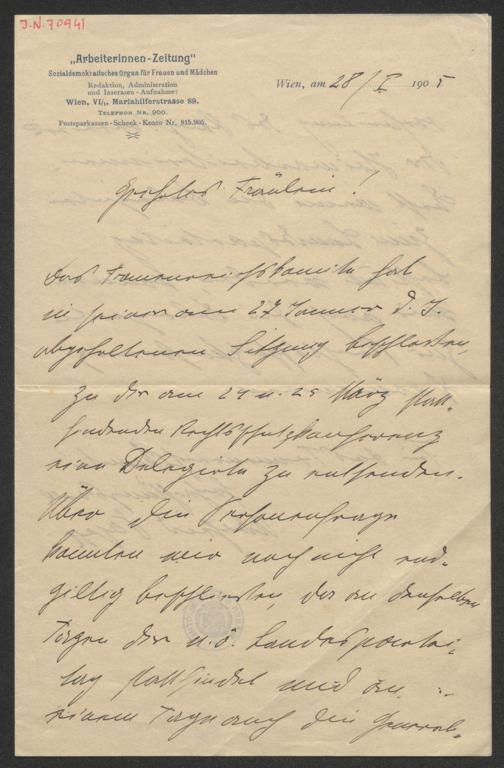 J.N. 70941
„Arbeiterinnen-Zeitung"
Sozialdemokratisches Organ für Frauen und Mädchen
Redaktion, Administration
und Inseraten-Aufnahme:
Wien, VI/₁, Mariahilferstrasse 89.
Telephon Nr. 900.
Postsparkassen-Scheck-Konto Nr. 815.905.
Wien, am 28/I 1905
Geehrtes Fräulein!
Das Frauenreichskomitee hat
in seiner am 27 Jänner d. J.
abgehaltenen Sitzung beschlossen,
zu der am 24 u. 25 März statt-
findenden Rechtsschutzkonferenz
eine Delegierte zu entsenden.
Über die Personenfrage
konnten wir noch nicht end-
giltig beschliessen, da an denselben
Tagen der n. ö. Landesparteitag
stattfindet und an
einem Tage auch die General-